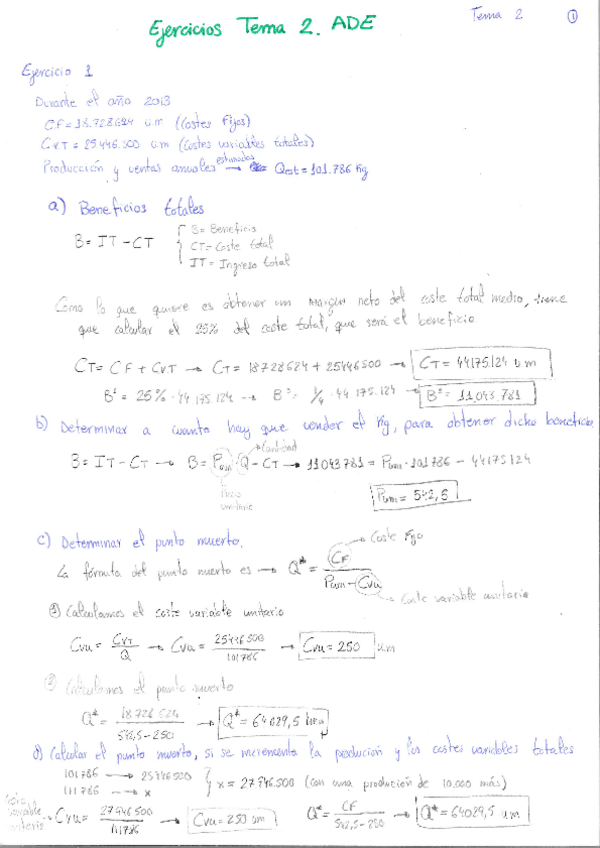 Ejercicios Tema 2. ADE
Tema 2 ①
Ejercicio 1
Durante el año 2013
CF = 18.728624 u.m (Costes Fijos)
CVT = 25446.500 u.m (Costes variables totales)
Producción y ventas anuales estimadas → Qest = 101.786 Kg
a) Beneficios totales
B = IT - CT
B = Beneficio
CT = Coste total
IT = Ingreso total
Como lo que quiere es obtener un margen neto del coste total medio, tiene
que calcular el 25% del coste total, que será el beneficio
CT = CF + CVT → CT = 18728624 + 25446500 → CT = 44175.124 u m
Bº = 25% · 44 175.124 → Bº = 1/4 · 44 175.124 → Bº = 11.043.781
b) Determinar a cuanto hay que vender el Kg, para obtener dicho beneficio
Cantidad
B = IT - CT → B = Pum · Q - CT → 11043781 = Pum · 101786 - 44175124
Precio
unitario
Pum = 542,5
c) Determinar el punto muerto.
Coste Fijo
La fórmula del punto muerto es → Q* = CF / Pum - CVu
Coste variable unitario
① Calculamos el coste variable unitario
CVu = CVT / Q → CVu = 25446500 / 101786 → CVu = 250 u.m
② Calculamos el punto muerto
Q* = 18728624 / 542,5 - 250 → Q* = 64029,5
d) Calcular el punto muerto, si se incrementa la producion y los costes variables totales
101786 → 25446500
111786 → x
x = 27946.500 (con una produción de 10.000 más)
variable
unitario
CVu = 27946500 / 111786 → CVu = 250 um
Q* = CF / 542,5 - 250 → Q* = 64029,5 um